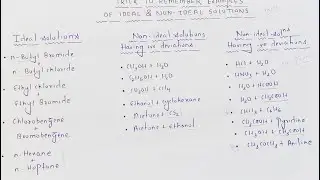 TRICK TO REMEMBER EXAMPLES
OF IDEAL & NON-IDEAL SOLUTIONS
Ideal solutions
n-Butyl Bromide
+
n Butyl Chloride
Ethyl chloride
+
Ethyl Bromide
Chlorobenzene
+
Bromobenzene
n Hexane
+
n Heptane
Non-ideal solutions
Having +ve deviations
CH3OH + H2O
C2H5OH + H2O
Ethanol + cyclohexane
Acetone + CS2
Acetone + ethanol
Non-ideal solns
Having -ve deviations
HCl + H2O
HNO3 + H2O
H2O + CH3COOH
CHCl3 + C6H6
CH3COOH + Pyridine
CH3COCH3 + Aniline